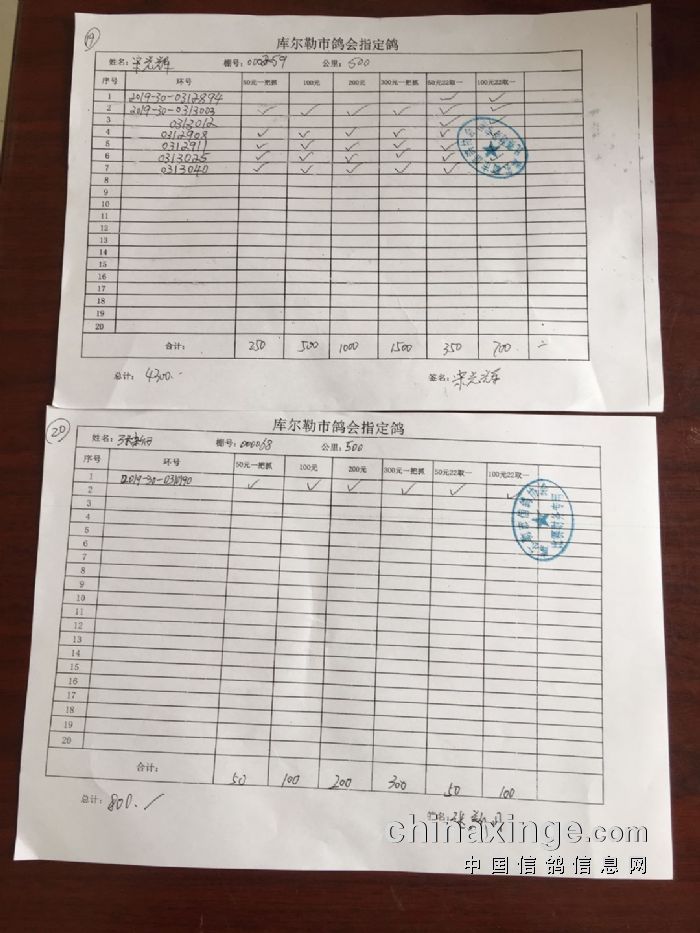 19
库尔勒市鸽会指定鸽
姓名: 宋光辉 棚号: 000259 公里: 500
序号 环号 50元一把抓 100元 200元 300元一把抓 50元22取一 100元22取一
1 2019-30-0312894 ✓ ✓
2 2019-30-0313003 ✓ ✓ ✓ ✓ ✓ ✓
3 0313012 ✓ ✓
4 0312908 ✓ ✓ ✓ ✓ ✓
5 0312911 ✓ ✓ ✓ ✓ ✓
6 0313025 ✓ ✓ ✓ ✓ ✓
7 0313040 ✓ ✓ ✓ ✓ ✓ ✓
8
9
10
11
12
13
14
15
16
17
18
19
20
合计: 250 500 1000 1500 350 700
总计: 4300. 签名: 宋光辉
20
库尔勒市鸽会指定鸽
姓名: 棚号: 000068 公里: 500
序号 环号 50元一把抓 100元 200元 300元一把抓 50元22取一 100元22取一
1 2019-30-0310190 ✓ ✓ ✓ ✓ ✓ ✓
2
3
4
5
6
7
8
9
10
11
12
13
14
15
16
17
18
19
20
合计: 50 100 200 300 50 100
总计: 800. 签名:
chinaxinge.com
中国信鸽信息网